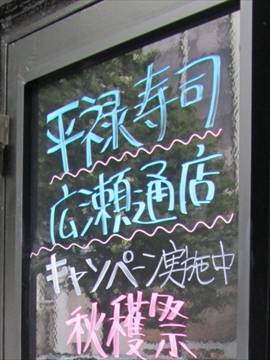 平禄寿司
広瀬通店
キャンペーン実施中
秋穫祭